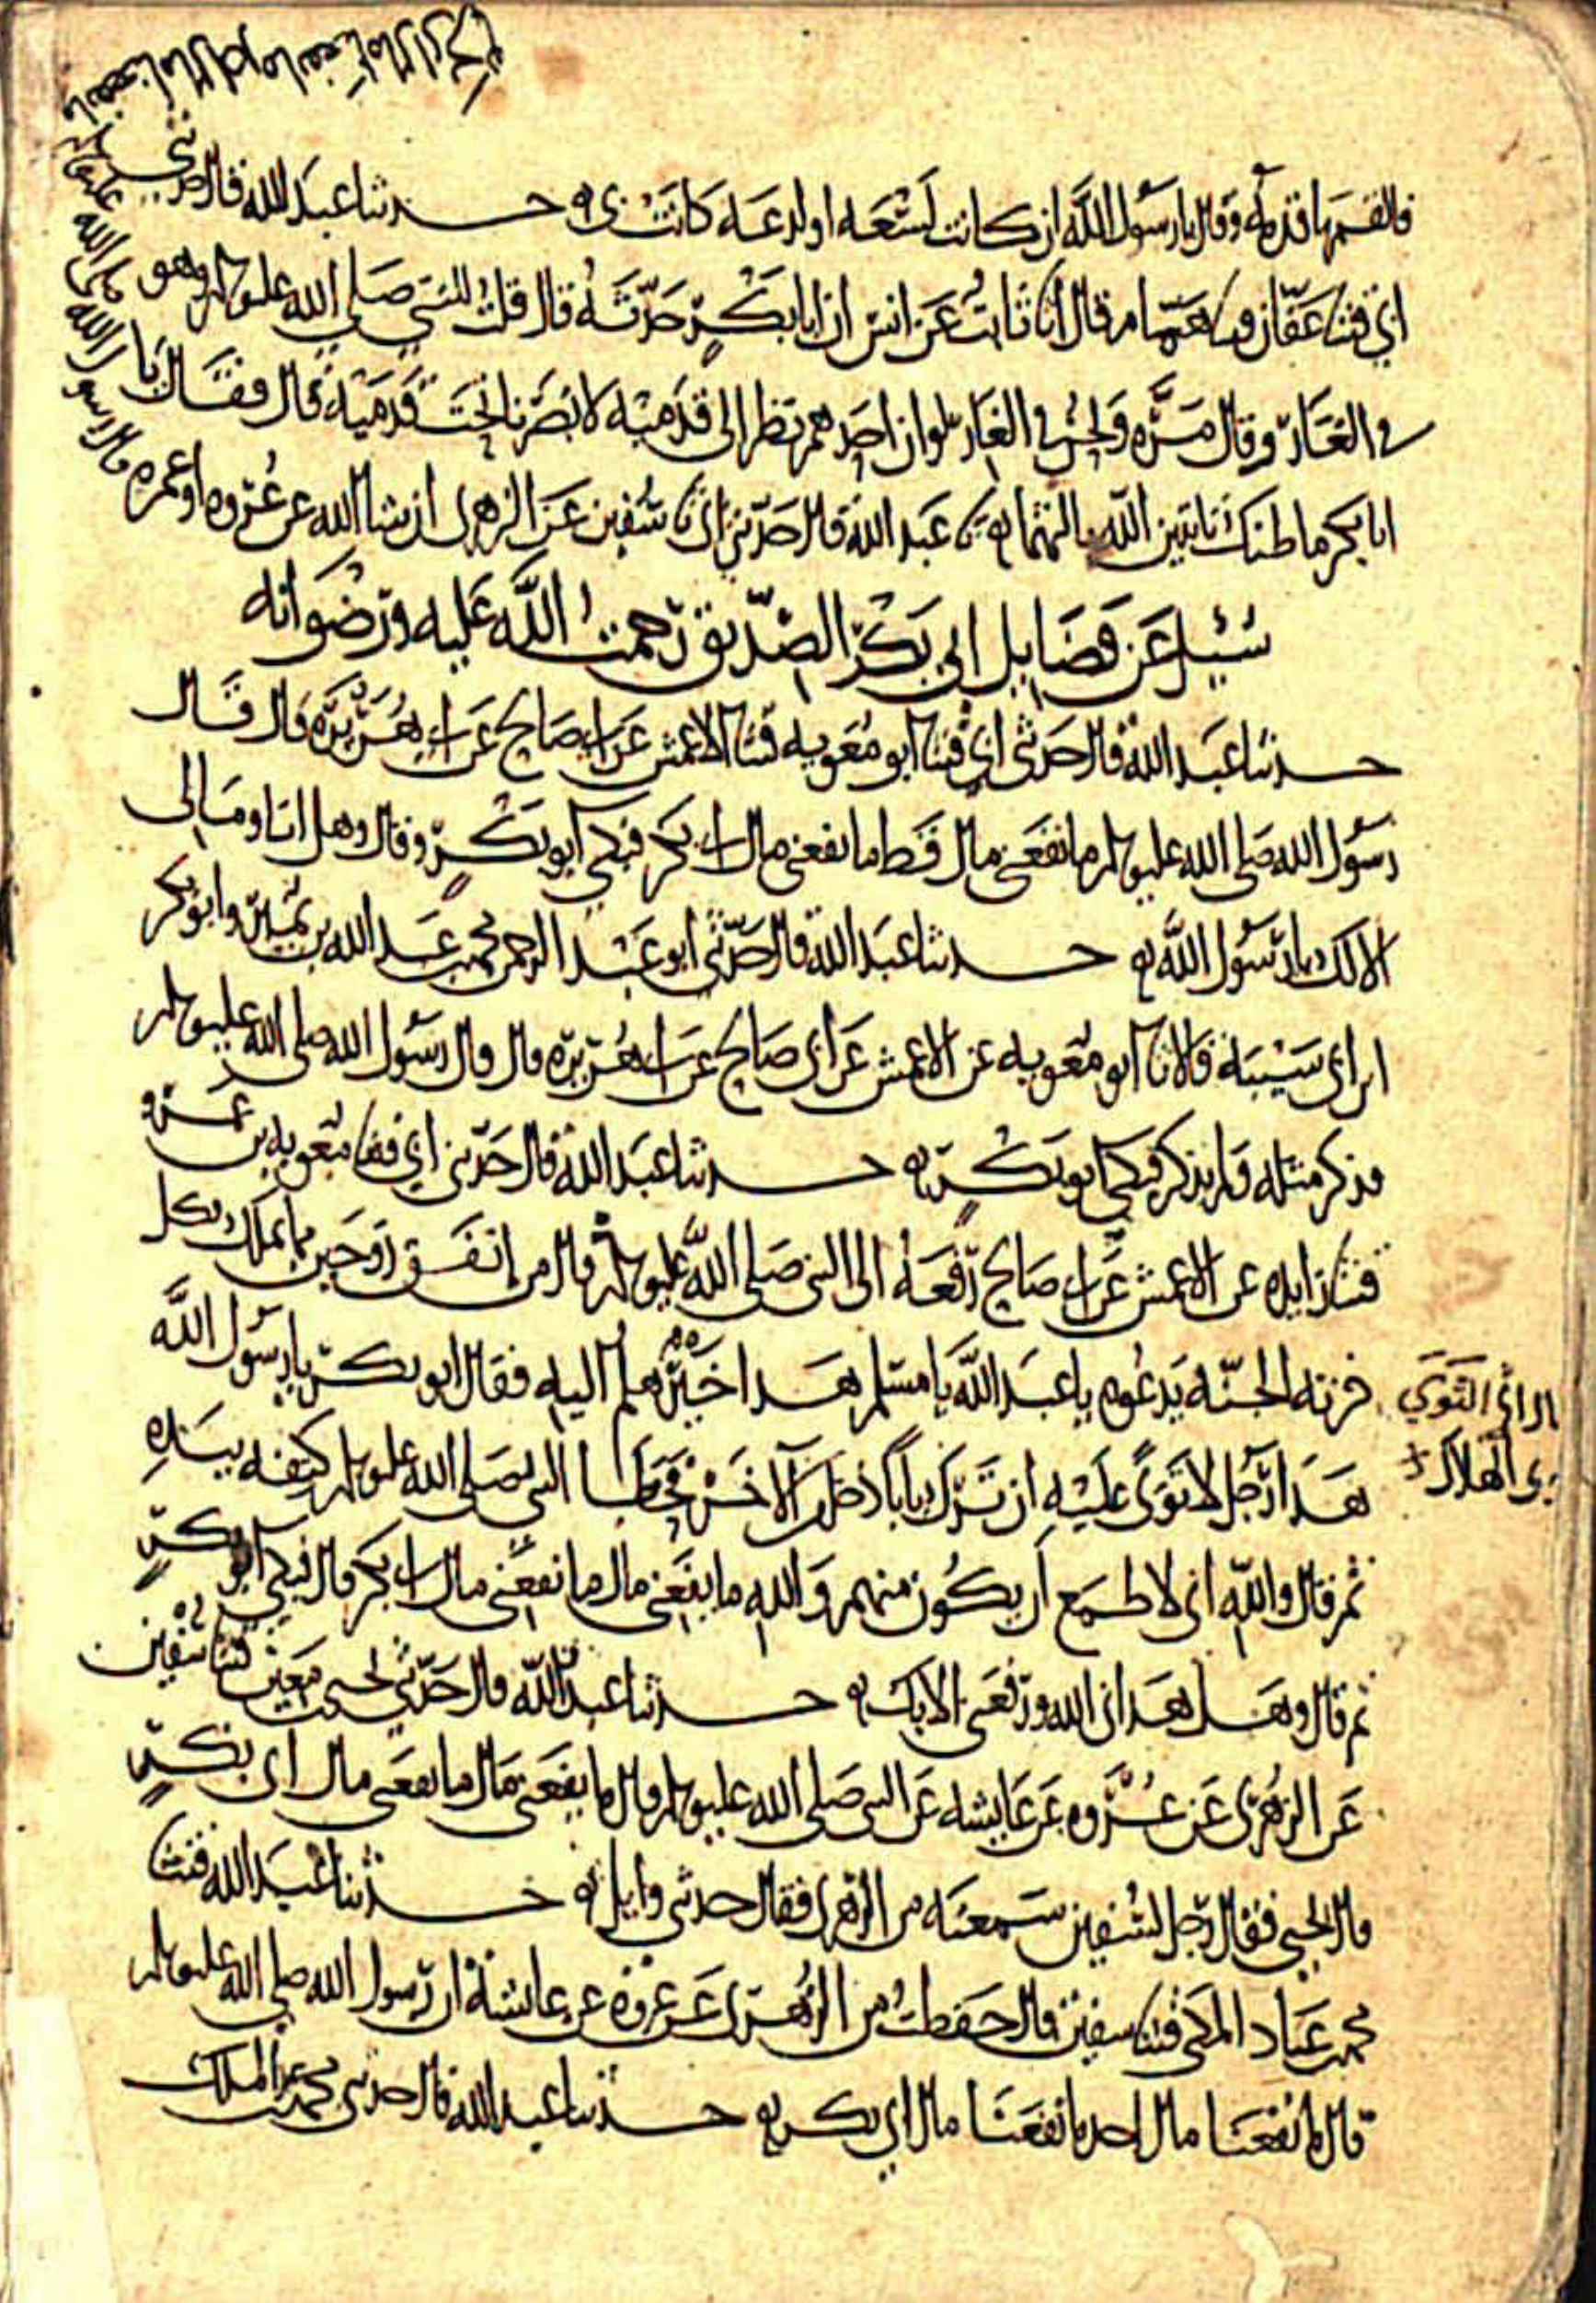 فالقمها قدمه وقال يا رسول الله ان كانت لسعه او لدغه كانت بي حدثنا عبد الله قال حدثني
ابي قثنا عفان قثنا همام قال انا ثابت عن انس ان ابا بكر حدثه قال قلت للنبي صلى الله عليه وسلم وهو
في الغار وقال مره ونحن في الغار لو ان احدهم نظر الى قدميه لابصرنا تحت قدميه قال فقال يا
ابا بكر ما ظنك باثنين الله ثالثهما عبد الله قال حدثني ابي نا سفين عن الزهري ان شا الله عن عروه او عمره
سئيل عن فضايل ابي بكر الصديق رحمت الله عليه ورضوانه
حدثنا عبد الله قال حدثني ابي قثنا ابو معويه قثنا الاعمش عن ابي صالح عن ابي هريره قال قال
رسول الله صلى الله عليه وسلم ما نفعني مال قط ما نفعني مال ابي بكر فبكى ابو بكر وقال وهل انا ومالي
الا لك يا رسول الله حدثنا عبد الله قال حدثني ابو عبد الرحمن محمد بن عبد الله بن نمير وابو بكر
ابن ابي شيبه قالا نا ابو معويه عن الاعمش عن ابي صالح عن ابي هريره قال قال رسول الله صلى الله عليه وسلم
فذكر مثله ولم يذكر فبكى ابو بكر حدثنا عبد الله قال حدثني ابي قثنا معويه بن عمرو
قثنا زايده عن الاعمش عن ابي صالح رفعه الى النبي صلى الله عليه وسلم قال من انفق زوجين مما يملك فكل
خزنه الجنه يدعوه يا عبد الله يا مسلم هذا خير هلم اليه فقال ابو بكر يا رسول الله
هذا رجل لا توى عليه ان ترك بابا دخل من الاخر فحطا النبي صلى الله عليه وسلم كتفه بيده
ثم قال والله اني لاطمع ان يكون منهم والله ما نفعني مال ما نفعني مال ابي بكر قال فبكى ابو بكر
ثم قال وهل هداني الله ورفعني الا بك حدثنا عبد الله قال حدثني يحيى بن معين قثنا سفين
عن الزهري عن عروه عن عايشه عن النبي صلى الله عليه وسلم قال ما نفعني مال ما نفعني مال ابي بكر
قال يحيى فقال رجل لسفين سمعته من الزهري فقال حدثني وايل حدثنا عبد الله قثنا
محمد بن عباد المكي قثنا سفين قال حفظت من الزهري عن عروه عن عايشة ان رسول الله صلى الله عليه وسلم
قال ما نفعنا مال احد ما نفعنا مال ابي بكر حدثنا عبد الله قال حدثني محمد بن عبد الملك
قال رسول الله صلى الله عليه وسلم ما نفعنا مال ما نفعنا مال ابي بكر
التوى
الهلاك